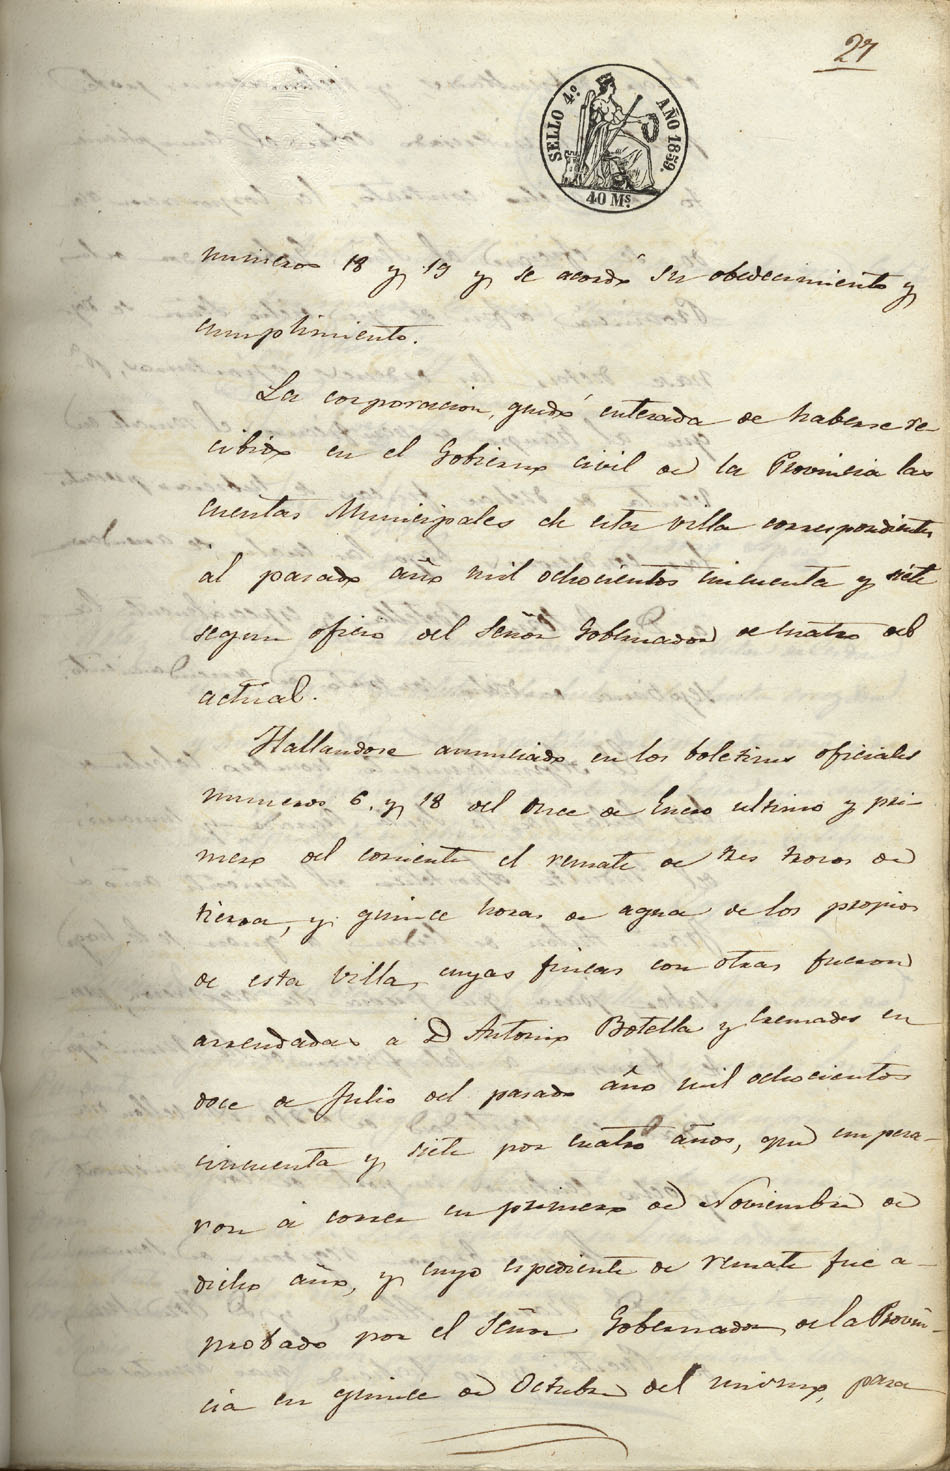 27
SELLO 4º AÑO 1859.
40 Ms.
numeros 18 y 19 y se acordó su obedecimiento y
cumplimiento.
La corporacion, quedó enterada de haberse re-
cibido en el Gobierno civil de la Provincia las
cuentas Municipales de esta villa correspondientes
al pasado año mil ochocientos cincuenta y siete
segun oficio del Señor Gobernador de cuatro del
actual.
Hallandose anunciado en los boletines oficiales
numeros 6. y 18 del Once de Enero ultimo y pri-
mero del corriente el remate de tres trozos de
tierra, y quince horas de agua de los propios
de esta Villa, cuyas fincas con otras fueron
arrendadas á D Antonio Botella y Cremades en
doce de Julio del pasado año mil ochocientos
cincuenta y siete por cuatro años, que empeza-
ron á correr en primero de Noviembre de
dicho año, y cuyo espediente de remate fue a-
probado por el Señor Gobernador de la Provin-
cia en quince de Octubre del mismo, para